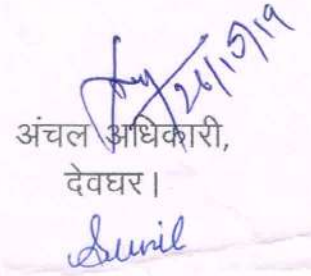 26/10/19
अंचल अधिकारी,
देवघर।
Sunil